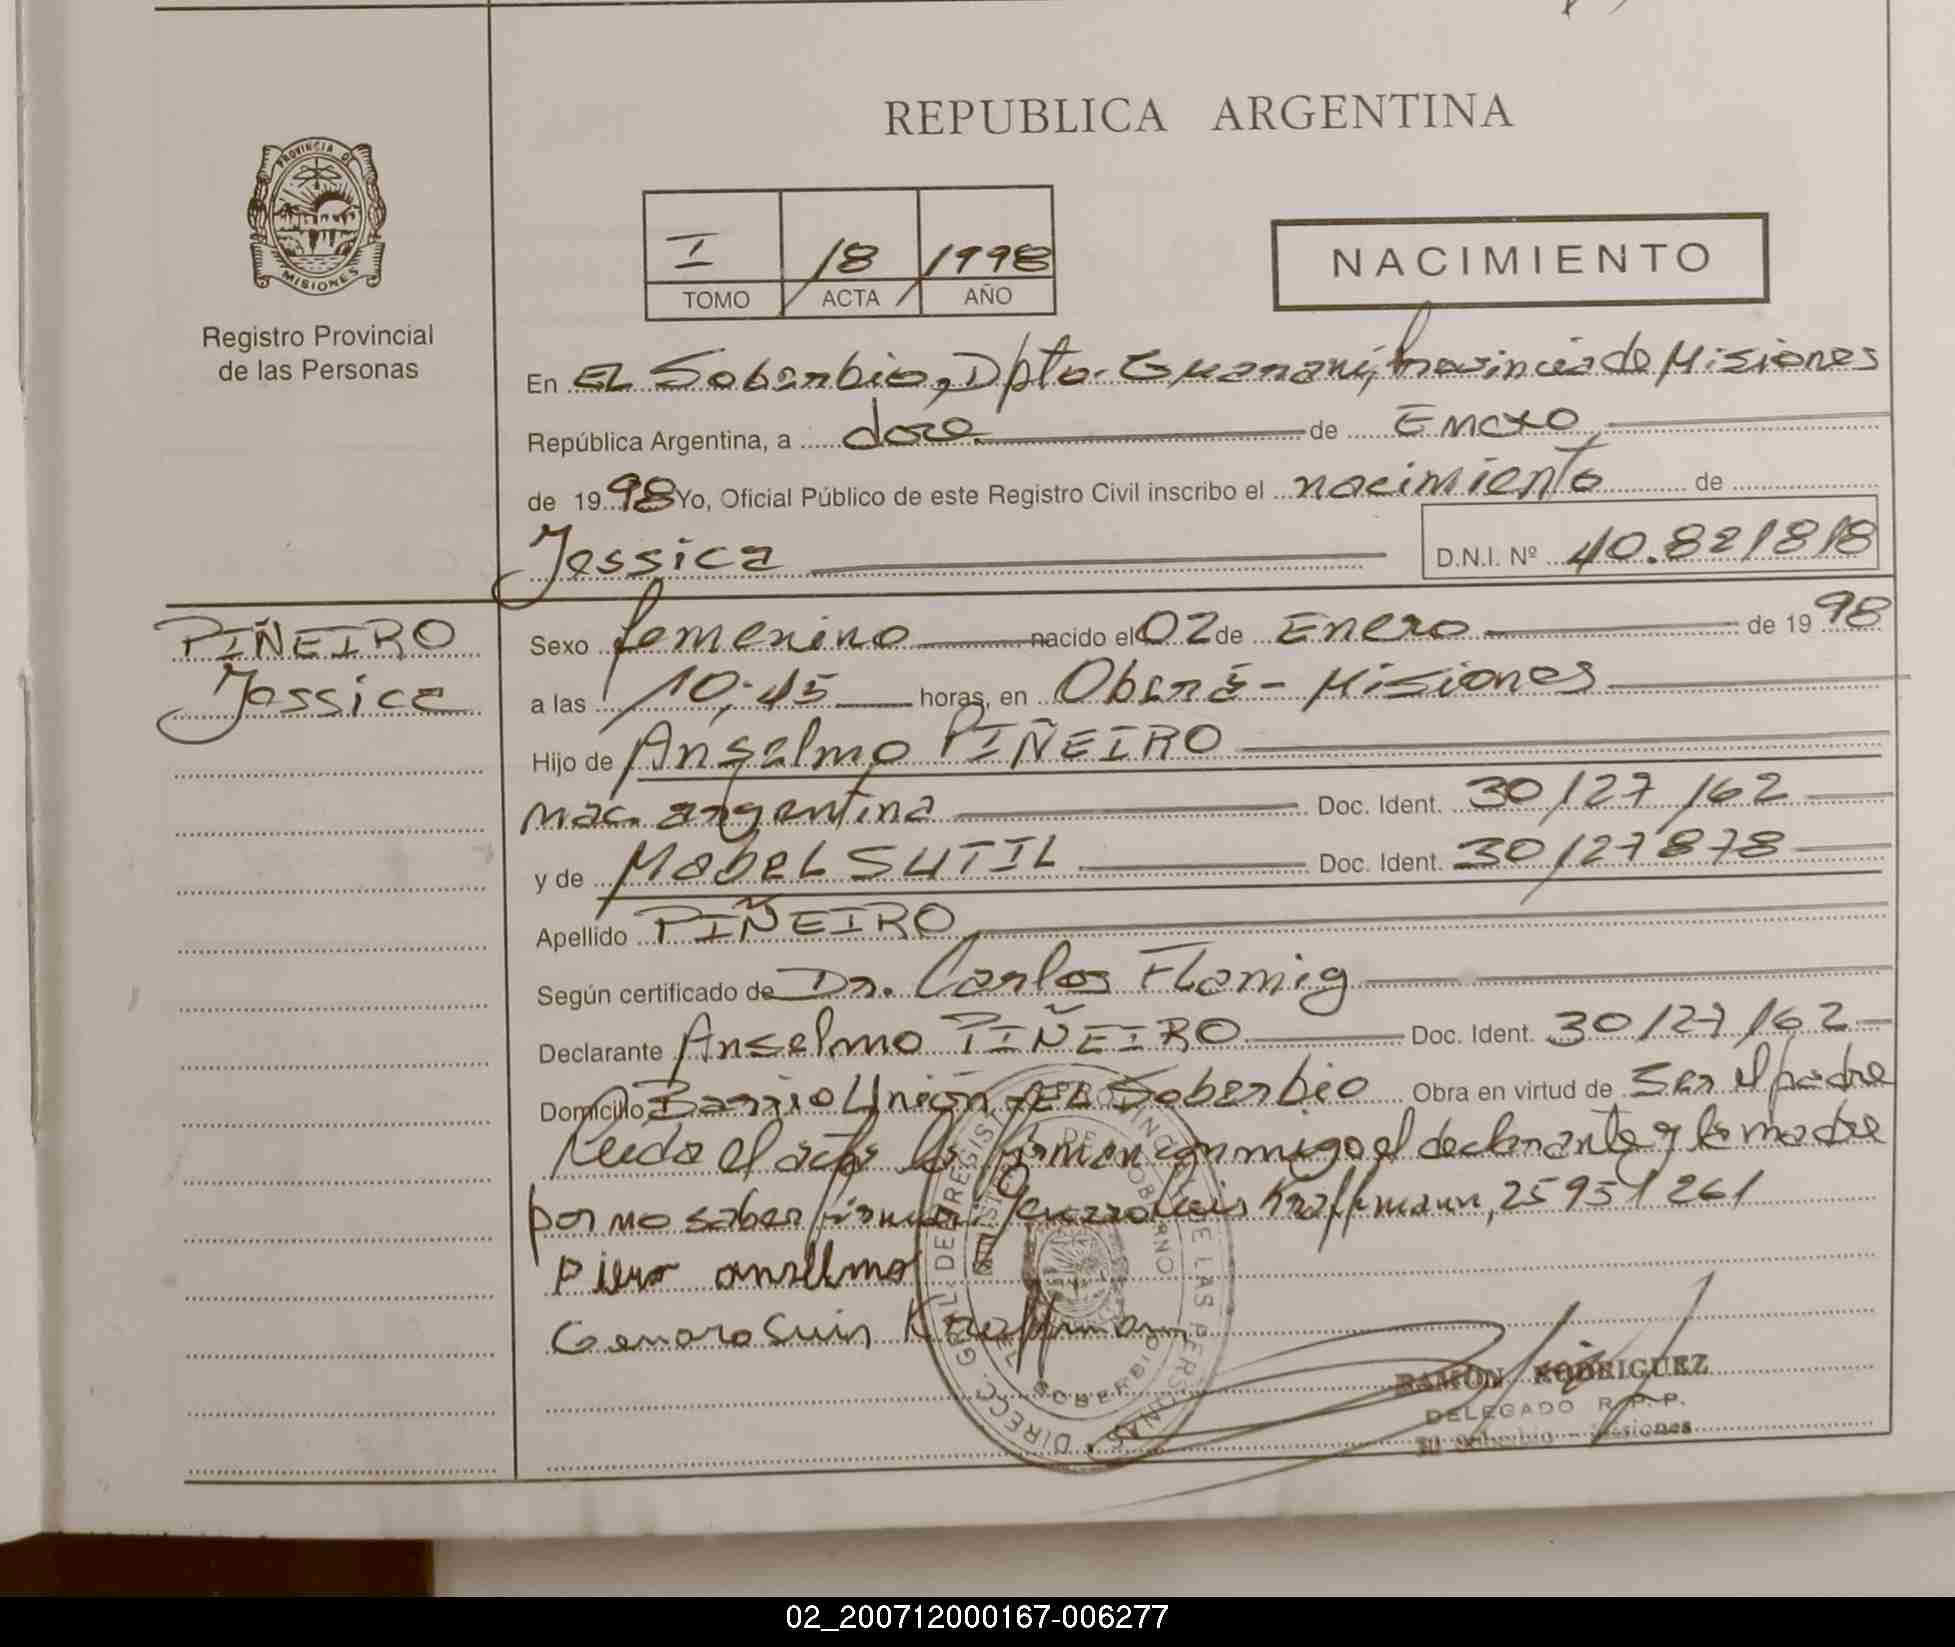 REPUBLICA ARGENTINA
PROVINCIA DE
MISIONES
Registro Provincial
de las Personas
I 18 1998
TOMO ACTA AÑO
NACIMIENTO
En EL Soberbio, Dpto. Guaraní, Provincia de Misiones
República Argentina, a doce de Enero
de 1998 Yo, Oficial Público de este Registro Civil inscribo el nacimiento de
Jessica D.N.I. Nº 40.821818
PIÑEIRO
Jessica
Sexo femenino nacido el 02 de Enero de 1998
a las 10:45 horas, en Oberá - Misiones
Hijo de Anselmo PIÑEIRO
nac. argentina Doc. Ident. 30127162
y de Mabel SUTIL Doc. Ident. 30127878
Apellido PIÑEIRO
Según certificado de Dr. Carlos Flamig
Declarante Anselmo PIÑEIRO Doc. Ident. 30127162
Domicilio Barrio Unión, EL Soberbio Obra en virtud de ser el padre
Leída el acta la firman conmigo el declarante y la madre
por no saber firmar Genaro Luis Kraffmann, 25951261
Piero anselmo
Genaro Luis Kraffmann
DIRECC. GRAL. DE REGISTRO PROVINCIAL DE LAS PERSONAS
DE GOBIERNO
EL SOBERBIO
RAMON RODRIGUEZ
DELEGADO R.P.P.
El Soberbio - Misiones
02_200712000167-006277